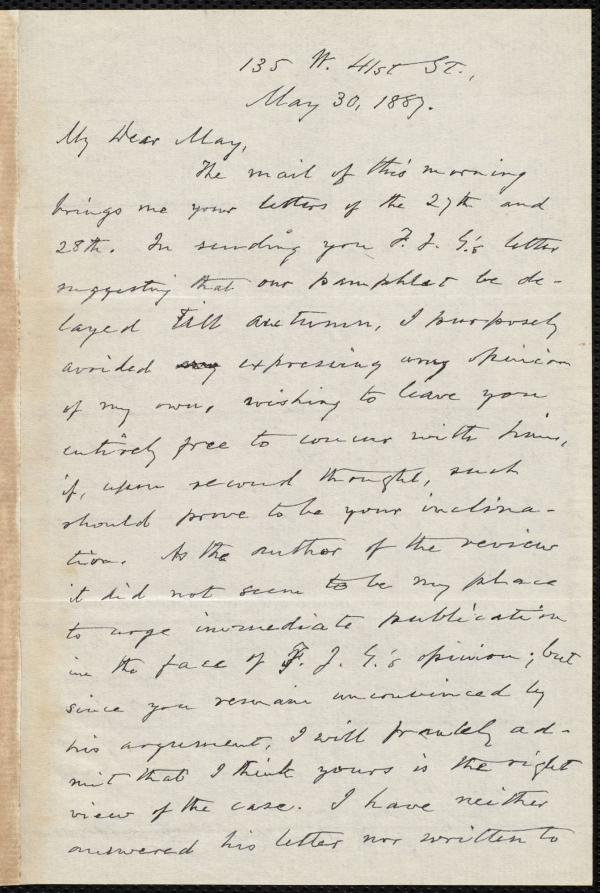 135 W. 41st St.,
May 30, 1887.
My Dear May,
The mail of this morning
brings me your letters of the 27th and
28th. In sending you F. J. G.'s letter
suggesting that our pamphlet be de-
layed till autumn, I purposely
avoided any expressing any opinion
of my own, wishing to leave you
entirely free to concur with him,
if, upon second thought, such
should prove to be your inclina-
tion. As the author of the review
it did not seem to be my place
to urge immediate publication
in the face of F. J. G.'s opinion; but
since you remain unconvinced by
his argument, I will frankly ad-
mit that I think yours is the right
view of the case. I have neither
answered his letter nor written to